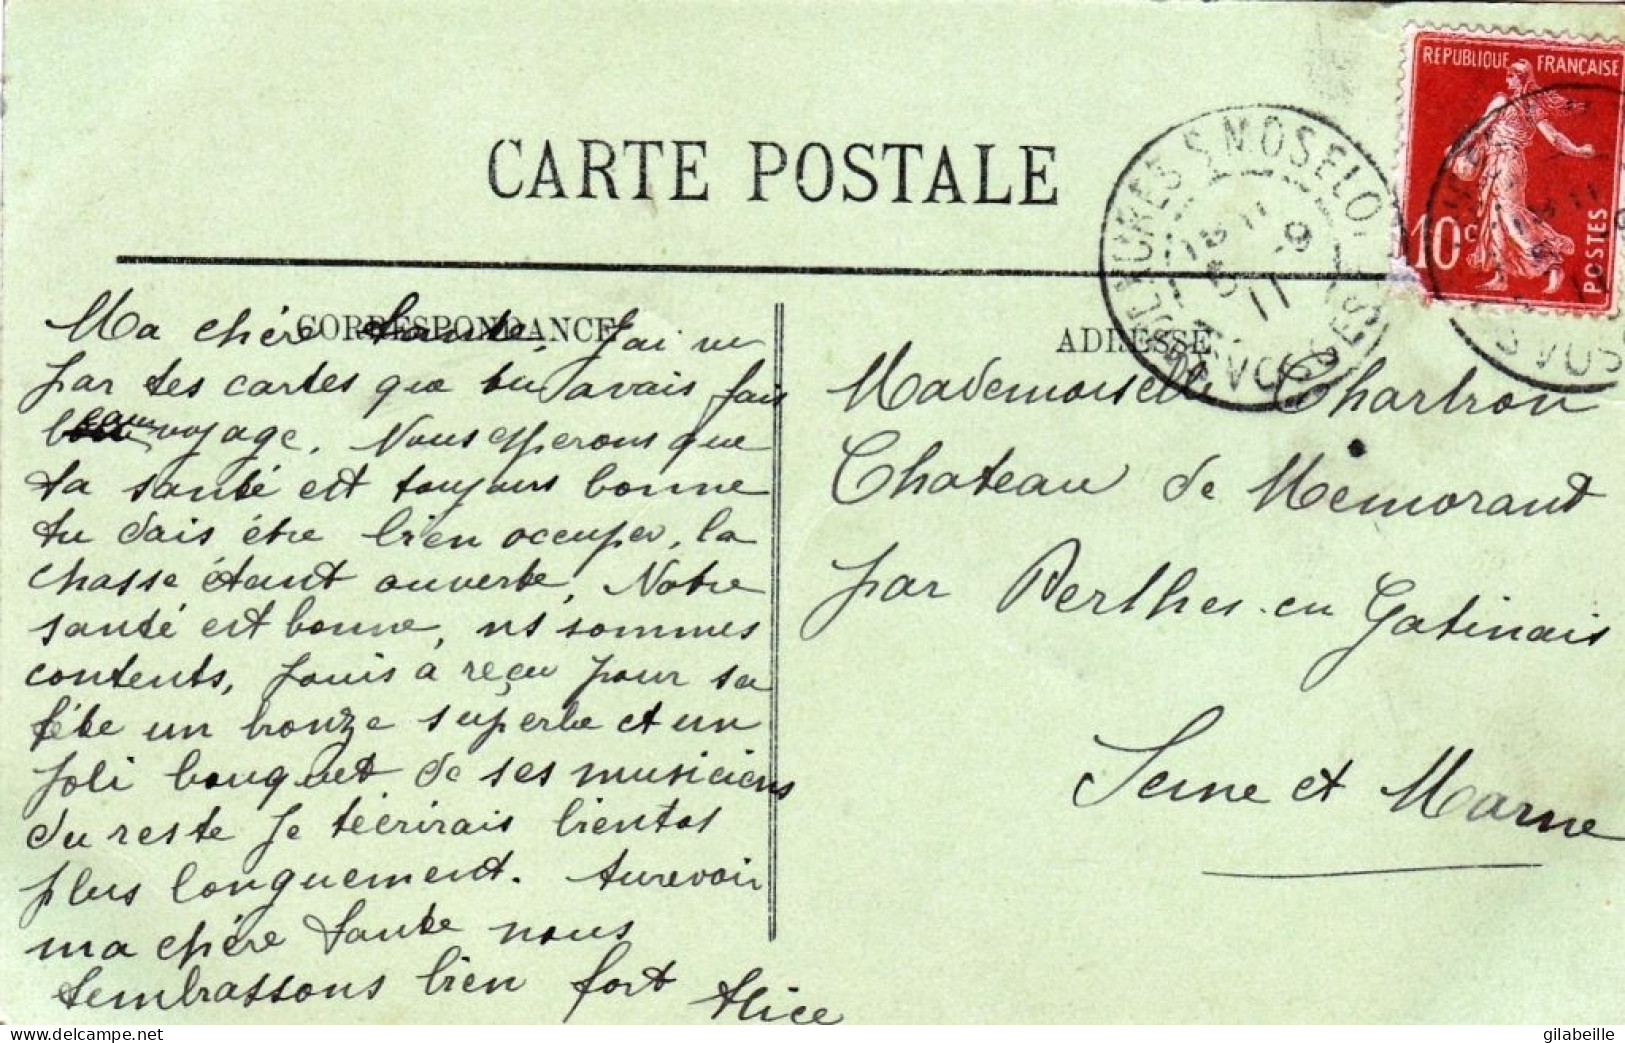 REPUBLIQUE FRANÇAISE
10c
POSTES
CARTE POSTALE
S MOSELO
VOSGES
5 9
11
VOS
CORRESPONDANCE
ADRESSE
Ma chère tante. J'ai vu
par tes cartes que tu avais fais
beau voyage. Nous esperons que
ta santé est toujours bonne
tu dais être bien occuper, la
chasse étant ouverte, Notre
santé est bonne, ns sommes
contents, Louis à reçu pour sa
fête un bronze superbe et un
joli bouquet de ses musiciens
du reste je técrirais bientot
plus longuement. Aurevoir
ma chère tante nous
tembrassons bien fort Alice
Mademoiselle Chartron
Chateau de Mémorant
par Perthes-en Gatinais
Seine et Marne
www.delcampe.net
gilabeille